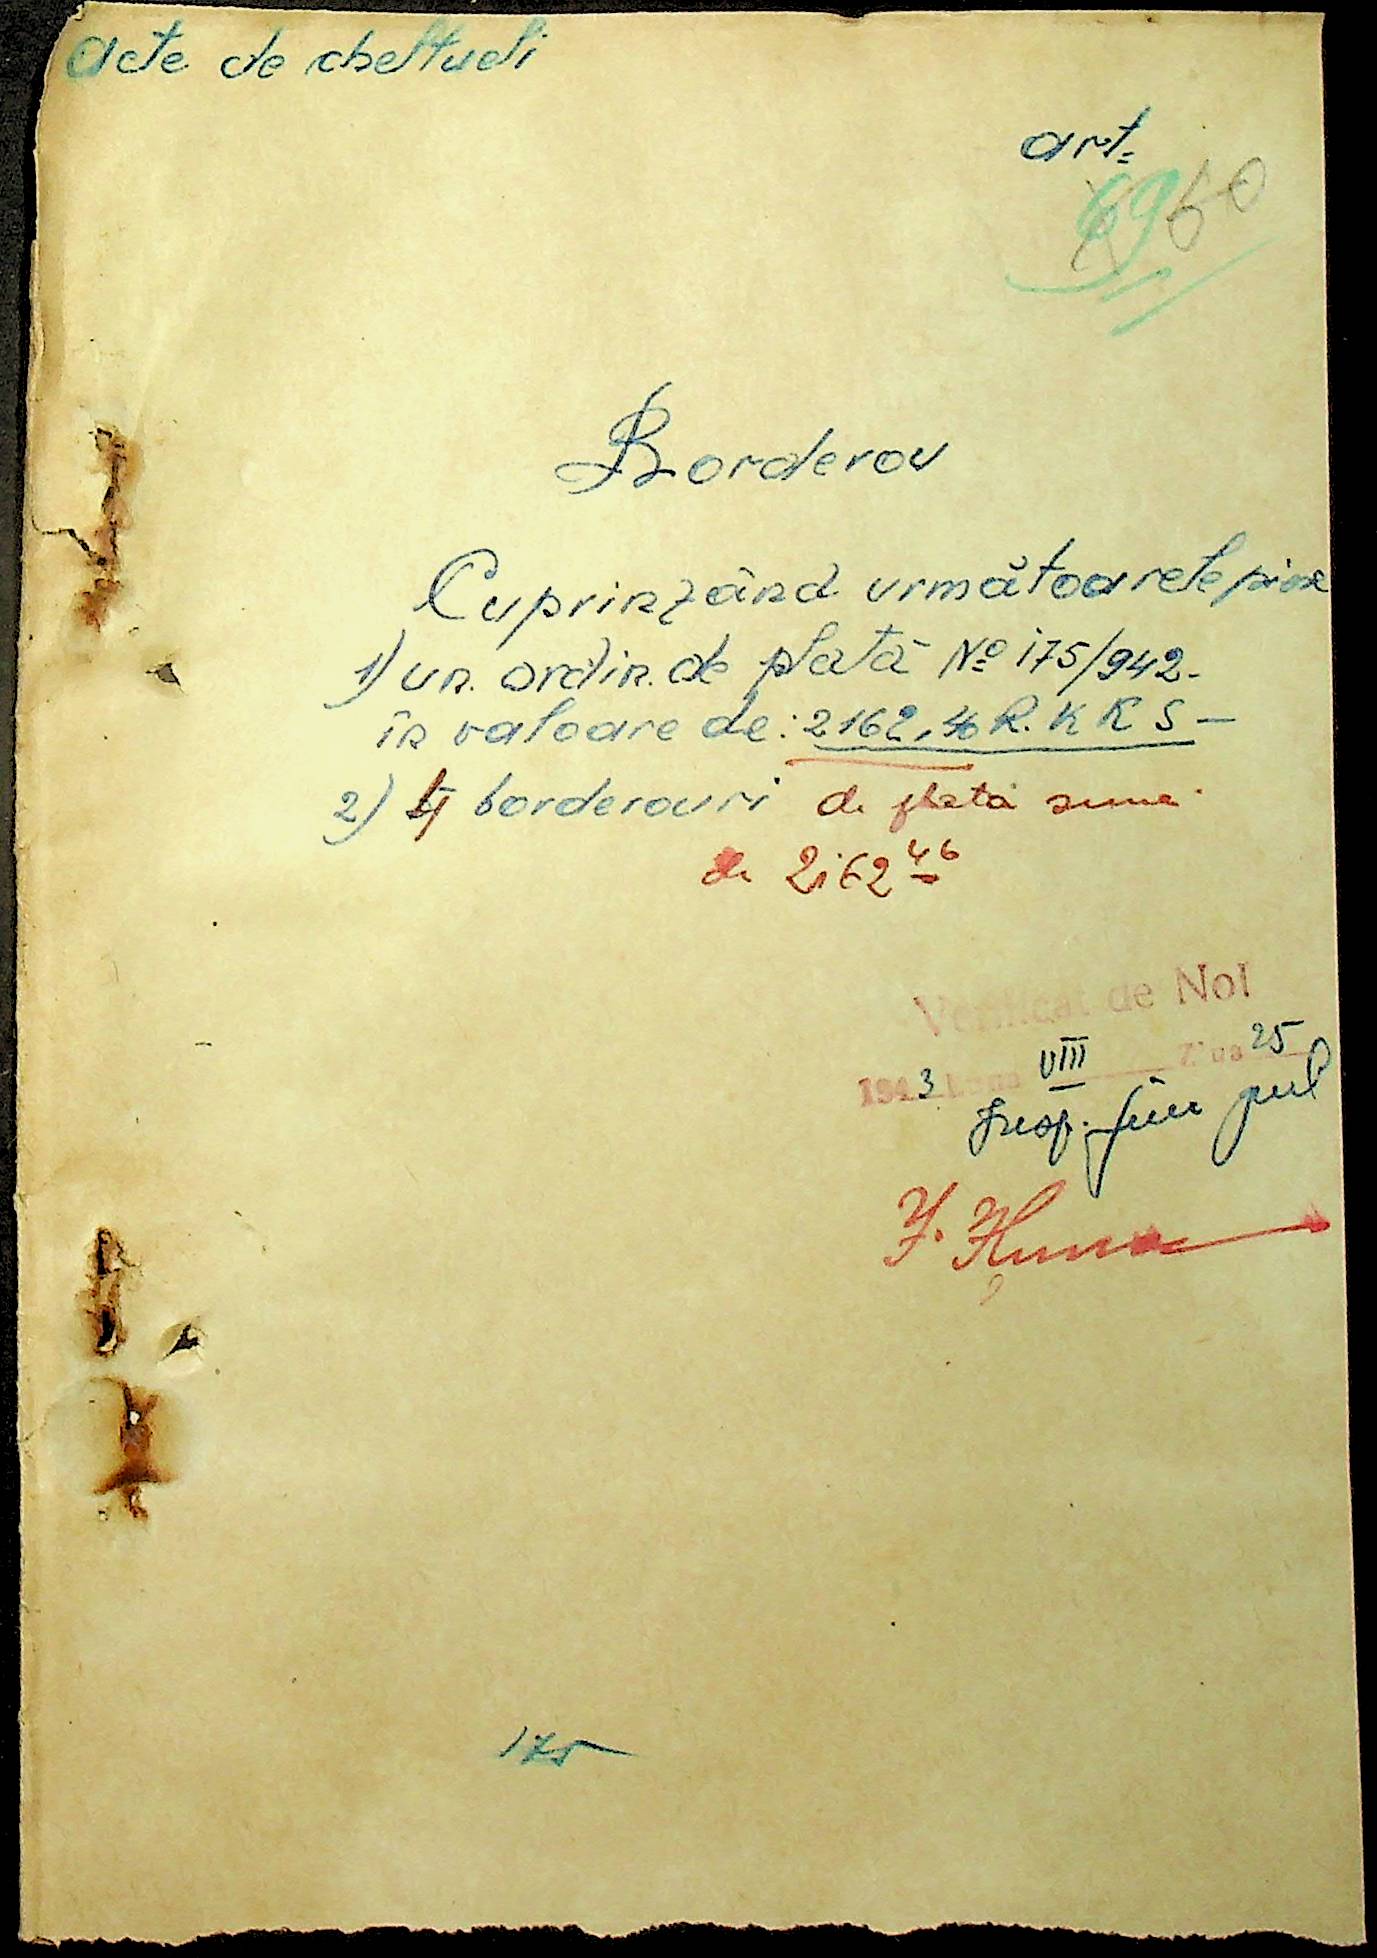 Acte de cheltueli
art.
69 60
Borderou
Cuprinzând următoarele piese
1) un ordin de plată No 175/942-
în valoare de: 2162,46 R.K.K.S -
2) 4 borderouri de plată suma
de 2162 46
Verificat de Noi
1943 Luna VIII Ziua 25
Insp. fin
175